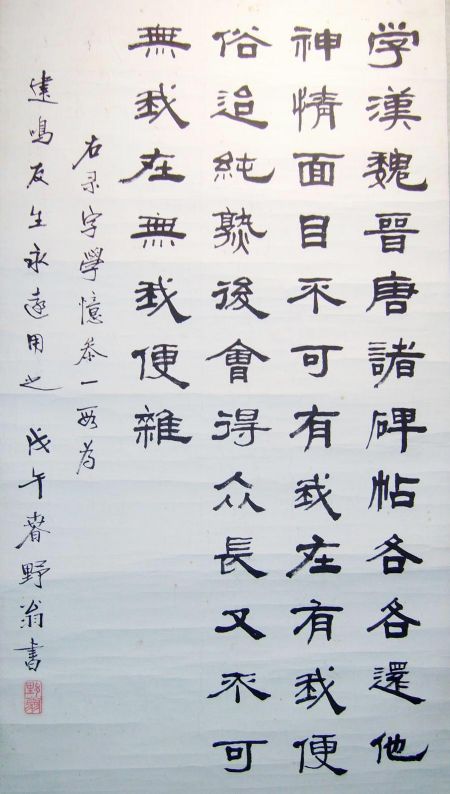 学漢魏晉唐諸碑帖各各還他
神情面目不可有我在有我便
俗迨純熟後會得众長又不可
無我在無我便雜
右录字學憶叅一段為
建鳴友生永遠用之 戊午春野翁書
野翁